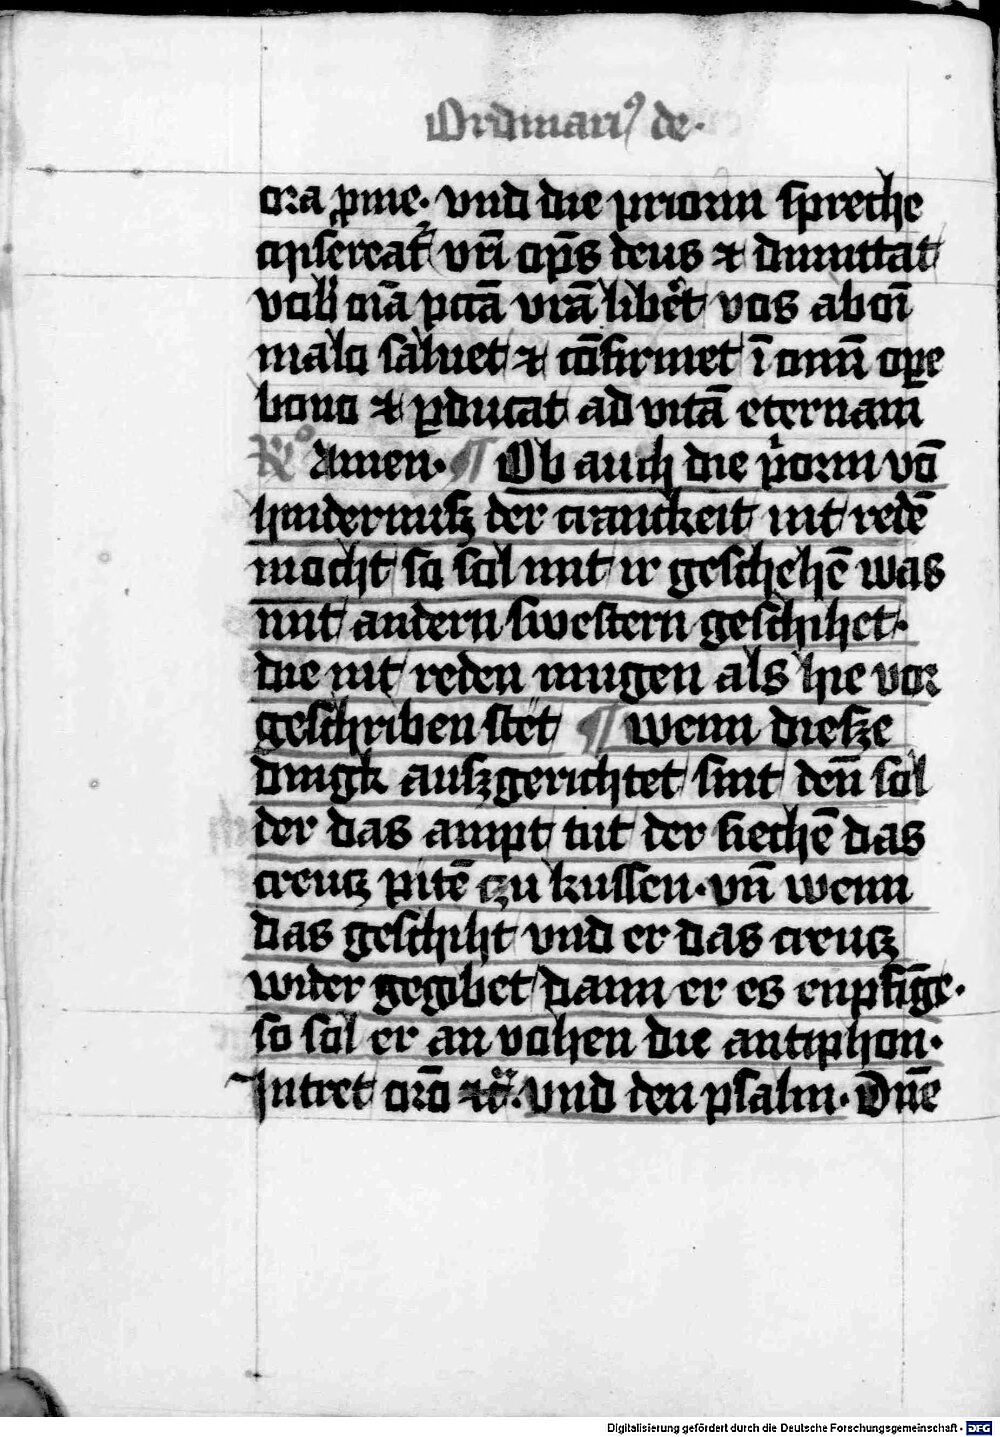 Ordinariꝰ de·
ora ꝓ me· vnd die priorin spreche
Misereat᷑ vr̃i om̄ps deus ⁊ dimittat
vob̄ om̄ia pctā vr̄a liƀet vos ab om̄i
malo saluet ⁊ cōfirmet ī omni oꝑe
bono ⁊ ꝑducat ad vitā eternam
℟ Amen· ¶ Ob auch die pͥorin vō
hindernuß der cranckeit nit redē
mocht so sol mit ir geschehē was
mit andern swestern geschihet·
die nit reden mugen als hie vor
geschriben stet ¶ wenn dieße
dingk außgerichtet sint den̄ sol
der das ampt tut der siechē das
creutz pitē czu kussen· vn̄ wenn
das geschiht vnd er das creutz
wider gegibet dann er es enpfīge·
so sol er an vohen die antiphon·
Intret oro ⁊c̄· vnd den psalm· Dn̄e
Digitalisierung gefördert durch die Deutsche Forschungsgemeinschaft - DFG